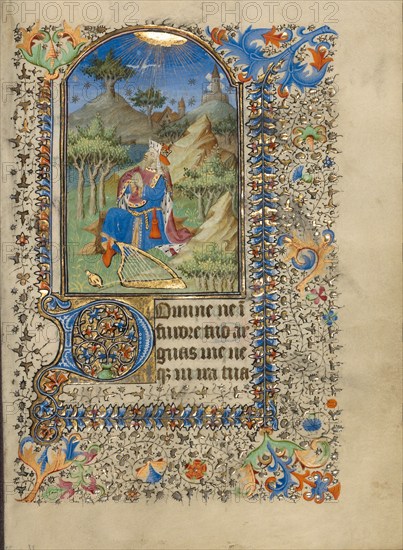 Domine ne i
furore tuo ar
guas me ne
q3 in ira tua